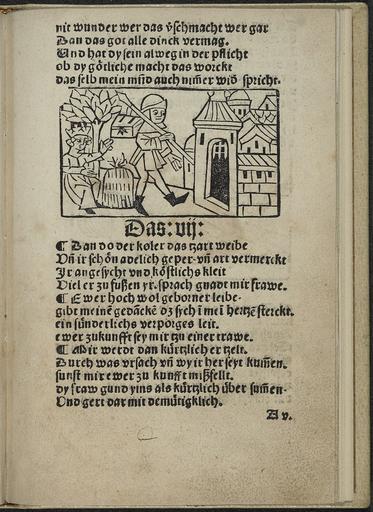 nit wunder wer das v̊schmacht wer gar
Dan das got alle dinck vermag.
Und hat dy sein alweg in der pflicht
ob dy götliche macht das worckt
das selb mein mūd auch nim̄er wid̄ spricht.
Das: vij:
¶ Dan do der koler das zart weibe
Vn̄ ir schön adelich geper. vn̄ art vermerckt
Jr angesycht vnd köstlichs kleit
Viel er zu fußen yr. sprach gnadt mir frawe.
¶ Ewer hoch wol geborner leibe.
gibt meinē gedāckē dz sych ī meī hertzē sterckt.
ein sünderlichs verporges leit.
ewer zukunfft sey mir zu einer trawe.
¶ Mir werdt dan kürtzlich er zelt.
Durch was vrsach vn̄ wy ir her seyt kum̄en.
sunst mir ewer zu kunfft mißfellt.
dy fraw gund yins als kürtzlich über sum̄en.
Vnd gert dar mit demütigklich.
A v.